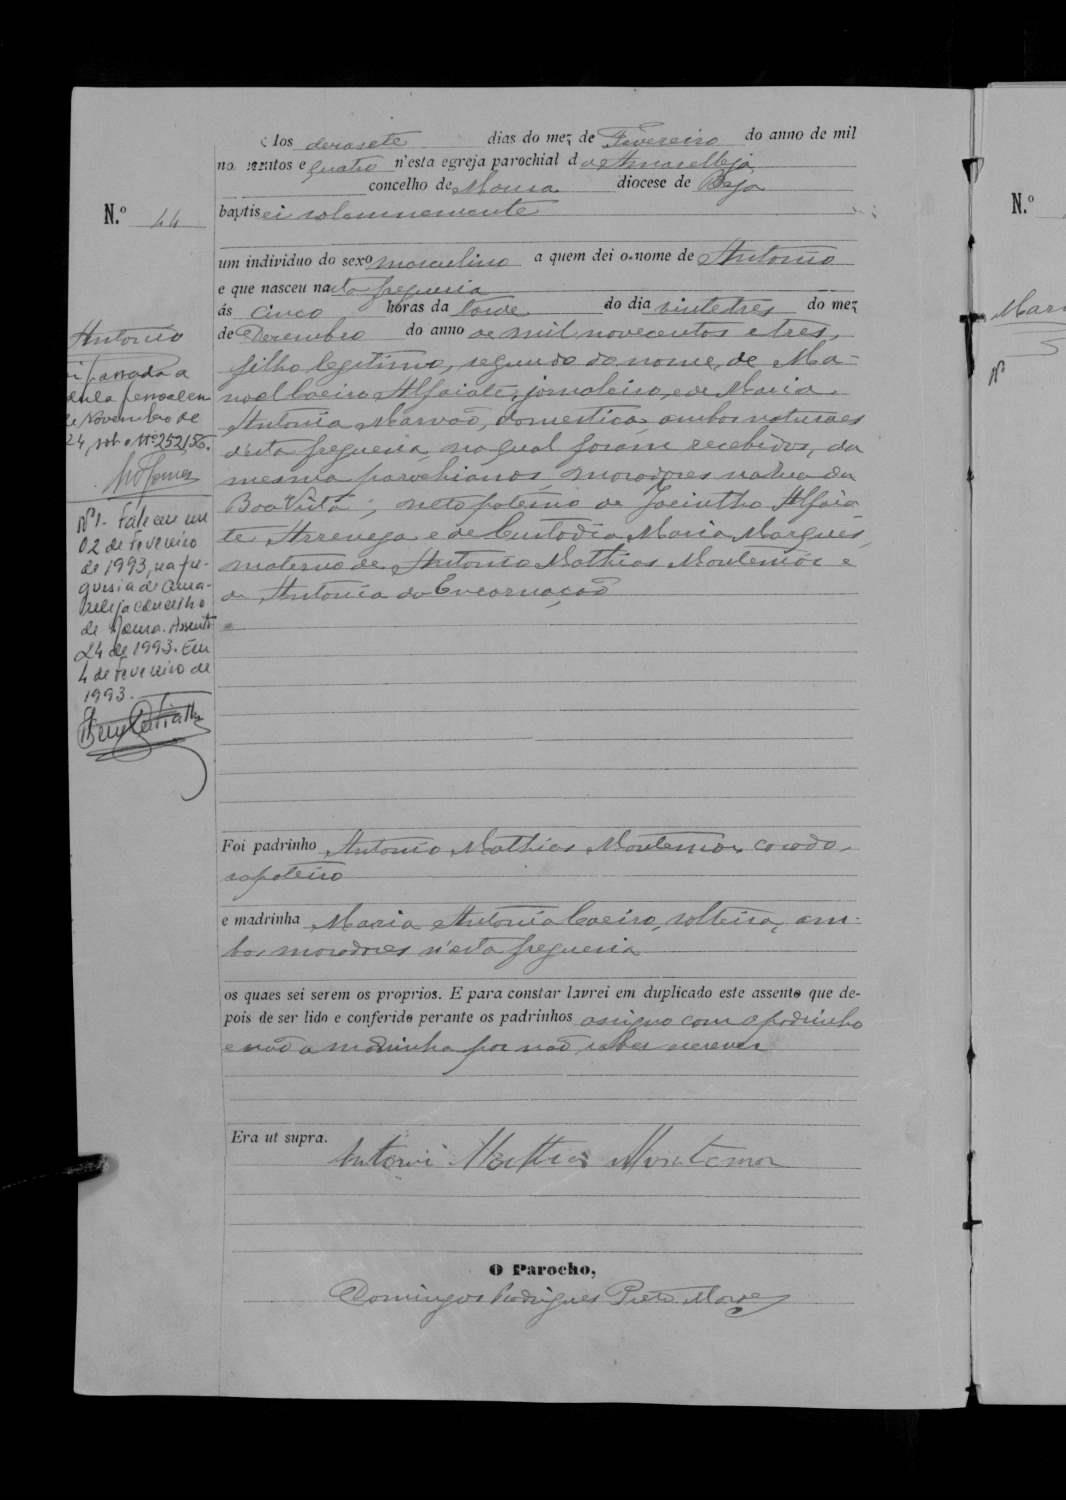 Aos dezasete dias do mez de Fevereiro do anno de mil
novecentos e quatro n'esta egreja parochial de Amarelleja
concelho de Moura diocese de Beja
N.º 44
baptisei solemnemente
um individuo do sexo masculino a quem dei o nome de Antonio
e que nasceu nesta freguesia
ás cinco horas da tarde do dia vinte tres do mez
de Dezembro do anno de mil novecentos e tres,
filho legitimo, segundo do nome, de Ma-
noel Caeiro Alfaiate, jornaleiro, e de Maria
Antonia Marvão, domestica, ambos naturaes
desta freguesia, na qual foram recebidos, da
mesma parochianos, moradores na Rua da
Boa Vista; neto paterno de Jacintho Alfaia
te Arrenega e de Custodia Maria Marques,
materno de Antonio Mathias Montemór e
de Antonia da Encarnação
Antonio
foi passada a
cedula pessoal em
de Novembro de
24, sob o Nº 252,56.
Nº 1 - Faleceu em
02 de Fevereiro
de 1993, na fre-
guesia de Ama-
releja concelho
de Moura. Assento
24 de 1993. Em
4 de Fevereiro de
1993.
Foi padrinho Antonio Mathias Montemor, casado,
sapateiro
e madrinha Maria Antonia Caeiro, solteira, am-
bos moradores n'esta freguesia
os quaes sei serem os proprios. E para constar lavrei em duplicado este assento que de-
pois de ser lido e conferido perante os padrinhos assigno com o padrinho
e não a madrinha por não saber escrever
Era ut supra.
Antoni Mathias Montemor
O Parocho,
Domingos Rodrigues Preto
N.º
Mari
Nº